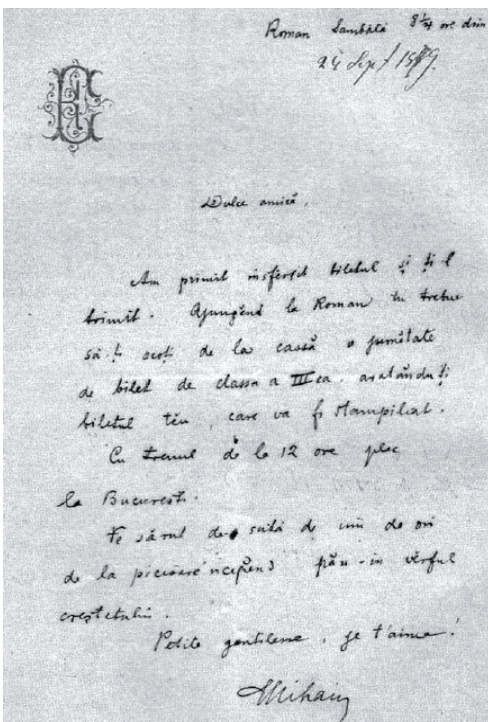 Roman Sambătă 8 1/4 ore dim
24 Sept 1879.
Dulce amică,
Am primit insfêrșit biletul și ți-l
trimit. Ajungênd la Roman tu trebue
să-ți scoți de la cassă o jumêtate
de bilet de classa a III ca, aratându-ți
biletul têu, care va fi stampilat.
Cu trenul de la 12 ore plec
la Bucuresti.
Te sărut de o sută de mii de ori
de la picioare 'ncepênd păn-in vêrful
creștetului.
Petite gentilesse, je t'aime!
Mihaiu